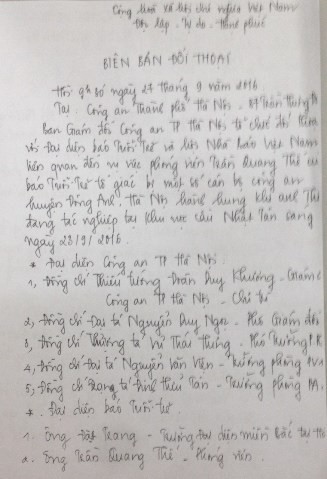 Cộng hòa xã hội chủ nghĩa Việt Nam
Độc lập - Tự do - Hạnh phúc
BIÊN BẢN ĐỐI THOẠI
Hồi 9h 30 ngày 27 tháng 9 năm 2016
Tại Công an thành phố Hà Nội - 87 Trần Hưng Đạo
Ban Giám đốc Công an TP Hà Nội tổ chức đối thoại
với đại diện báo Tuổi Trẻ và Hội Nhà báo Việt Nam
liên quan đến vụ việc phóng viên Trần Quang Thế của
báo Tuổi Trẻ tố giác bị một số cán bộ công an
huyện Đông Anh, Hà Nội hành hung khi anh Thế
đang tác nghiệp tại khu vực cầu Nhật Tân sáng
ngày 23/9/2016.
* Đại diện Công an TP Hà Nội.
1, Đồng chí Thiếu tướng Đoàn Duy Khương - Giám đ
Công an TP Hà Nội - Chủ trì
2, Đồng chí Đại tá Nguyễn Duy Ngọc - Phó Giám đốc
3, Đồng chí Thượng tá Vũ Thái Hưng - Phó Trưởng P.
4, Đồng chí Đại tá Nguyễn Văn Viện - Trưởng phòng
5, Đồng chí Trung tá Đinh Tân - Trưởng phòng PA
* Đại diện báo Tuổi trẻ
1. Ông Trang - Trưởng đại diện miền Bắc tại
2. Ông Trần Quang Thế - Phóng viên.